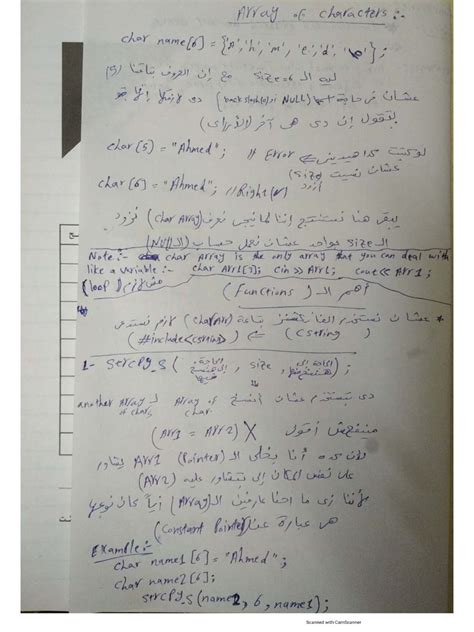 Array of characters:-
char name[6] = {'A','h','m','e','d','\0'};
ليه الـ size=6 مع إن الحروف بتاعتنا (5)
عشان في حاجة اسمها (NULL) أو (back slash(0)) دي
بتقول إن دي هي آخر الـ
لو كتبت كدا هيديني Error // char(5) = "Ahmed";
عشان نسيت أزود (Size)
char(6) = "Ahmed"; // Right (✓)
يبقى هنا نستنتج إننا لما نيجي نعرف (char Array) نزود
الـ size بواحد عشان نعمل حساب (الـ NULL)
Note:- char Array is the only array that you can deal with
like a variable:- char Arr1[7]; cin>>Arr1; cout<<Arr1;
(loop) مش لازم
أهم الـ (Functions)
* عشان نستخدم الفانكشنز بتاعة (charArr) لازم نستدعي
(#include<cstring>) ⇐ (cstring)
1- strcpy_s ( , size , );
دي بتستخدم عشان ننسخ Array of char لـ another Array of chars
مينفعش أقول (Arr1 = Arr2) X
لأن كده أنا بخلي الـ (Pointer) Arr1 يشاور
على نفس المكان إلي بيشاور عليه (Arr2)
لأننا زي ما احنا عارفين الـ (Array) أياً كان نوعها
هي عبارة عن (Constant Pointer)
Example:-
char name1[6] = "Ahmed";
char name2[6];
strcpy_s(name2, 6, name1);
Scanned with CamScanner